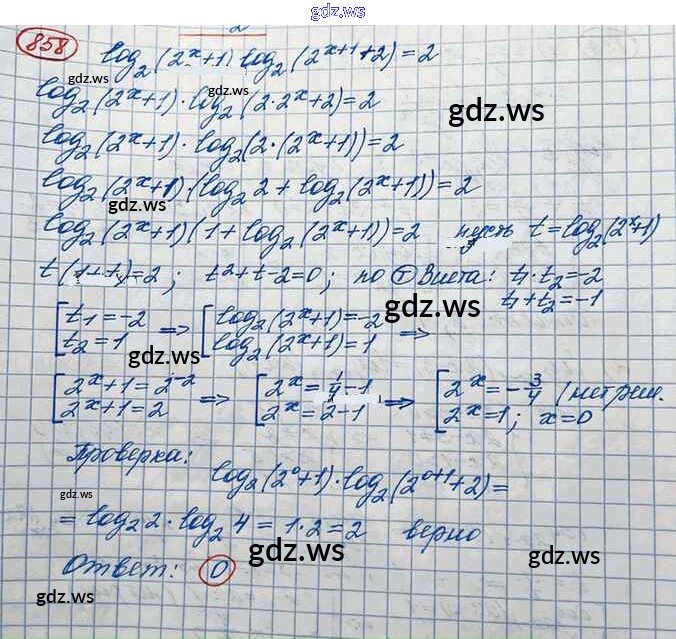 gdz.ws
858 log₂(2ˣ+1) log₂(2ˣ⁺¹+2)=2
log₂(2ˣ+1)·log₂(2·2ˣ+2)=2
gdz.ws
gdz.ws
log₂(2ˣ+1)·log₂(2·(2ˣ+1))=2
log₂(2ˣ+1)·(log₂2+log₂(2ˣ+1))=2
gdz.ws
log₂(2ˣ+1)(1+log₂(2ˣ+1))=2 пусть t=log₂(2ˣ+1)
t(1+t)=2; t²+t-2=0; по т Виета: t₁·t₂=-2
t₁+t₂=-1
[t₁=-2 => [log₂(2ˣ+1)=-2 =>
t₂=1 log₂(2ˣ+1)=1
gdz.ws
gdz.ws
[2ˣ+1=2⁻² => [2ˣ=1/4-1 => [2ˣ=-3/4 (нет реш.
2ˣ+1=2 2ˣ=2-1 2ˣ=1; x=0
Проверка:
log₂(2⁰+1)·log₂(2⁰⁺¹+2)=
gdz.ws
gdz.ws
= log₂2·log₂4=1·2=2 верно
gdz.ws
gdz.ws
Ответ: 0
gdz.ws